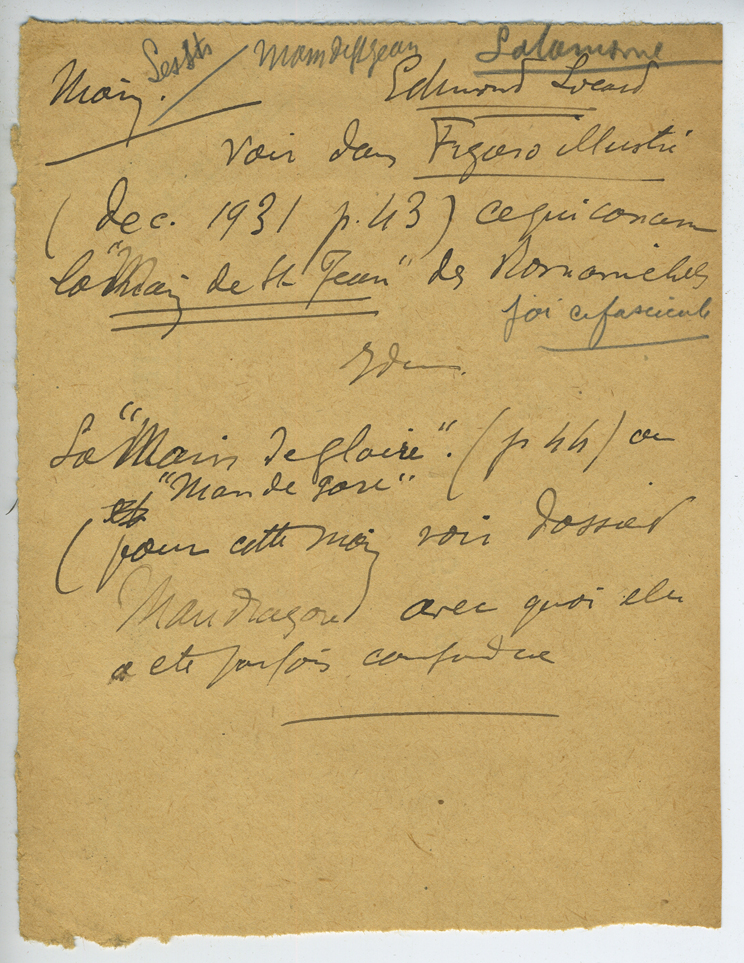 Main de St Jean
Main. Edmond Locard
Voir dans Figaro illustré
(dec. 1931 p. 43) ce qui concerne
la "Main de St Jean" des Romanichels
j'ai ce fascicule
Idem.
La "Main de gloire". (p 44) ou
"Man de gore"
(pour cette main voir dossier
Mandragore avec quoi elle
a ete parfois confondue